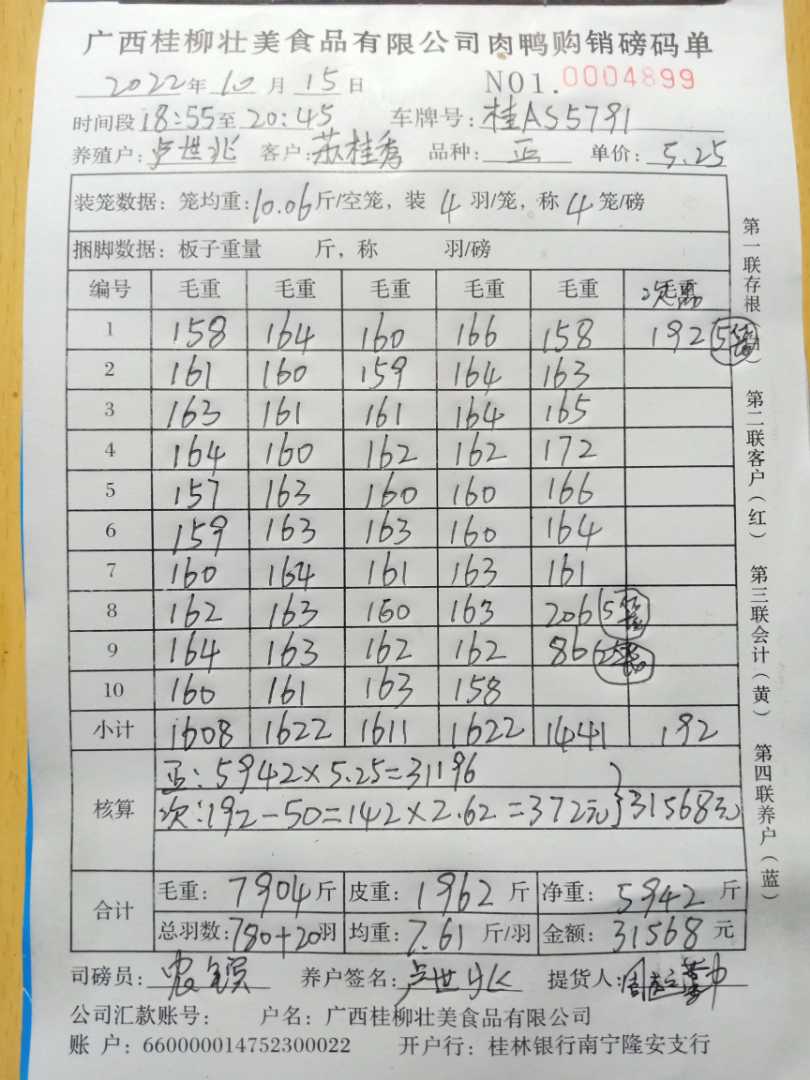 广西桂柳壮美食品有限公司肉鸭购销磅码单
2022年10月15日 NO1.0004899
时间段18:55至20:45 车牌号:桂AS5791
养殖户:卢世兆 客户:苏桂秀 品种:正 单价:5.25
装笼数据:笼均重:10.06斤/空笼,装4羽/笼,称4笼/磅
捆脚数据:板子重量 斤,称 羽/磅
编号 毛重 毛重 毛重 毛重 毛重 次毛重
1 158 164 160 166 158 192 5笼
2 161 160 159 164 163
3 163 161 161 164 165
4 164 160 162 162 172
5 157 163 160 160 166
6 159 163 163 160 164
7 160 164 161 163 161
8 162 163 160 163 206 5笼
9 164 163 162 162 86 2笼
10 160 161 163 158
小计 1608 1622 1611 1622 1441 192
核算 正:5942×5.25=31196
次:192-50=142×2.62=372元}31568元
合计 毛重:7904斤 皮重:1962斤 净重:5942斤
总羽数:780+20羽 均重:7.61斤/羽 金额:31568元
司磅员: 养户签名:卢世兆 提货人:
公司汇款账号: 户名:广西桂柳壮美食品有限公司
账 户:660000014752300022 开户行:桂林银行南宁隆安支行
第一联存根
第二联客户(红)
第三联会计(黄)
第四联养户(蓝)